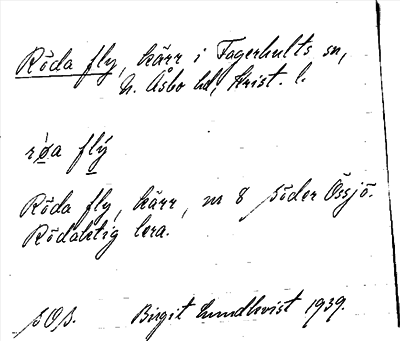 Röda fly, kärr i Fagerhults sn,
N. Åsbo hd, Krist. l.
rø̀a flý
Röda fly, kärr, nr 8 söder Össjö.
Rödaktig lera.
SOS. Birgit Lundkvist 1939.